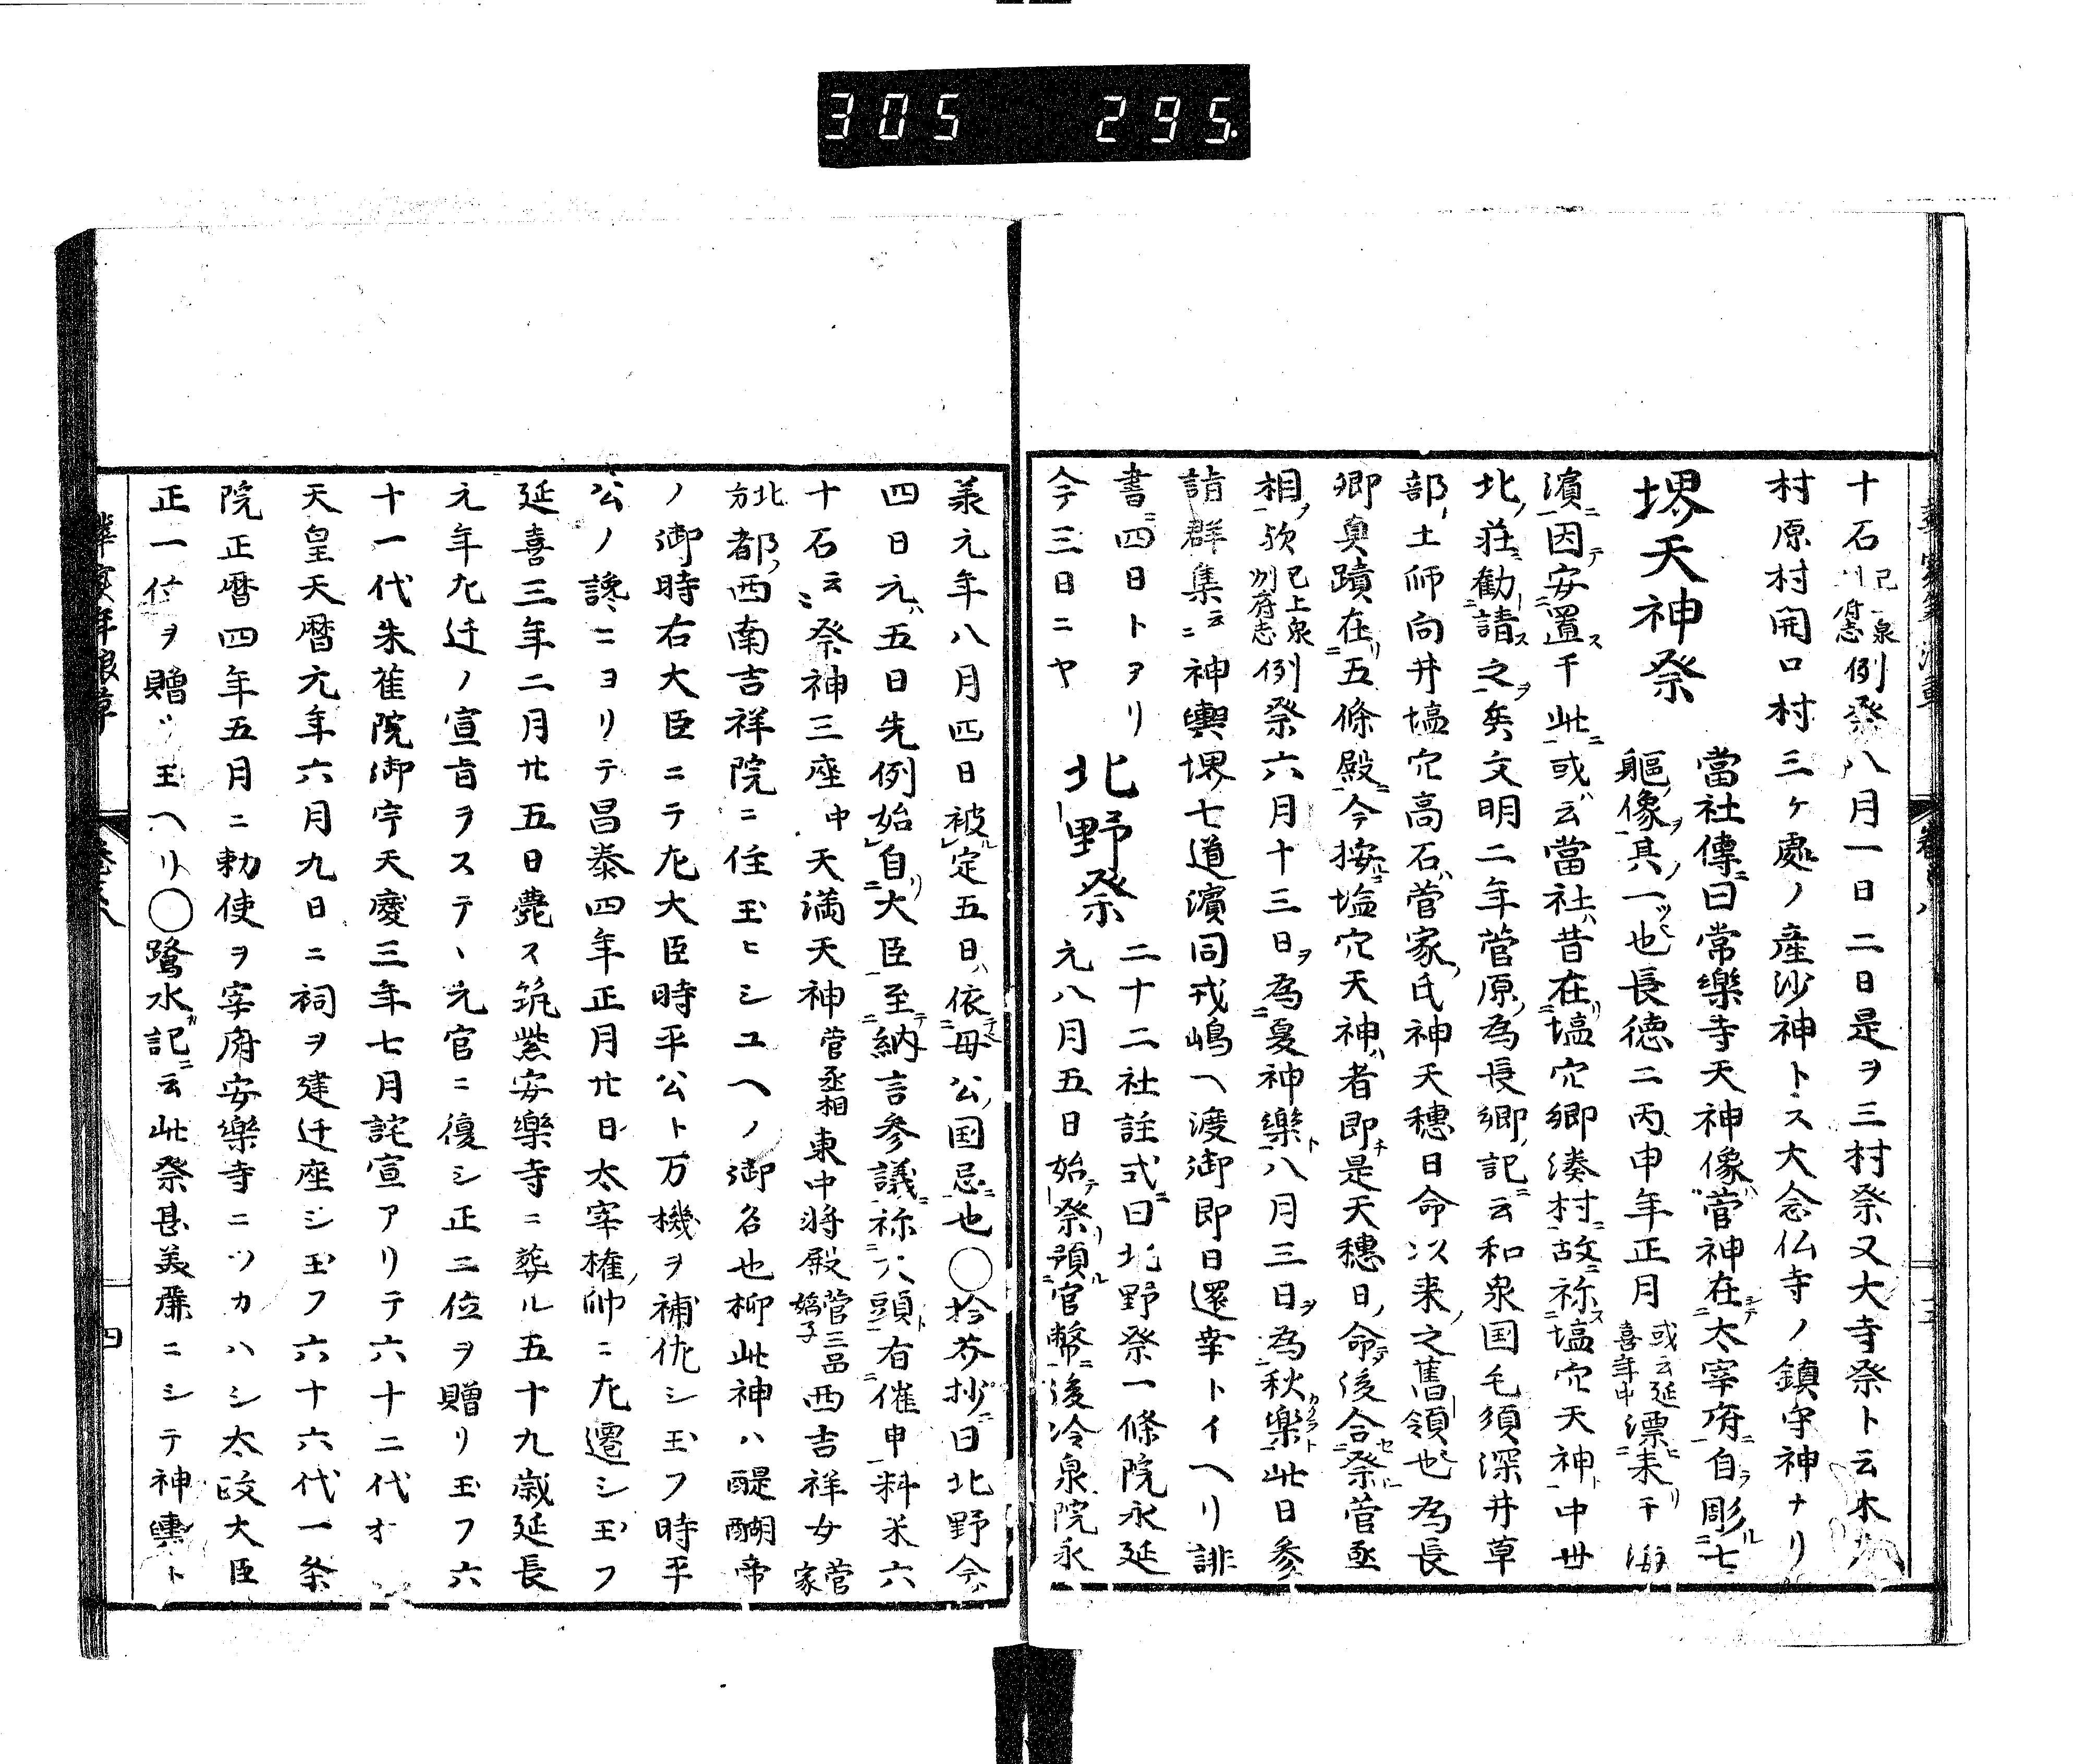 305 295.
十石已上泉州府志例祭八月一日二日是ヲ三村祭又大寺祭ト云木
村原村開口村三ヶ處ノ産沙神トス大念仏寺ノ鎮守神ナリ
堺天神祭
當社傳ニ曰常樂寺天神像ハ菅神在テ二太宰府ニ一自ラ彫ル二七
軀ノ像ヲ一其ノ一ツ也長徳二丙申年正月或云延喜年中漂ヒ二来リ干海
濱ニ一因テ安二置ス干此ニ一或ハ云當社ハ昔在リ二塩穴郷湊村ニ一故ニ称ス二塩穴天神ト一中世
北ノ荘ニ勧二請ス之ヲ一矣文明二年菅原ノ為長卿ノ記ニ云和泉国毛須深井草
部ノ土師向井塩穴高石ハ菅家ノ氏神天穂日命以来ノ之舊領也為長
卿真蹟在リ二五條殿ニ一今按ニ塩穴天神ハ者即チ是天穂日ノ命ヲ後合セ二祭ル菅丞
相ノ一欤已上泉州府志例祭六月十三日ヲ為二夏神樂ト一八月三日ヲ為二秋樂ト一此日参
詣群集ニ云神輿堺七道濱同戎嶋ヘ渡御即日還幸トイヘリ誹
書ニ四日トヲリ
今三日ニヤ
北野祭
二十二社註式ニ曰北野祭一條院永延
元八月五日始テ祭リ預ル二官幣ニ一後冷泉院永
承元年八月四日被ル定五日ハ依テ二母公ノ国忌ニ一也○拾芥抄ニ曰北野今ハ
四日元ハ五日先例始レ自リ二大臣一至テ二納言参議ニ一称二六頭ト一有二催申一料米六
十石云々祭神三座中天満天神菅丞相東中将殿菅三品嫡子西吉祥女菅家
北方都ノ西南吉祥院ニ住玉ヒシユヘノ御名也抑此神ハ醍醐帝
ノ御時右大臣ニテ左大臣時平公ト万機ヲ補佐シ玉フ時平
公ノ讒ニヨリテ昌泰四年正月廿日太宰権ノ帥ニ左遷シ玉フ
延喜三年二月廿五日薨ス筑紫安樂寺ニ葬ル五十九歳延長
元年左迁ノ宣旨ヲステヽ元官ニ復シ正二位ヲ贈リ玉フ六
十一代朱雀院御宇天慶三年七月詫宣アリテ六十二代
天皇天暦元年六月九日ニ祠ヲ建迁座シ玉フ六十六代一条
院正暦四年五月ニ勅使ヲ宰府安樂寺ニツカハシ太政大臣
正一位ヲ贈ツ玉ヘリ○鷺水記ニ云此祭甚美麗ニシテ神輿ト